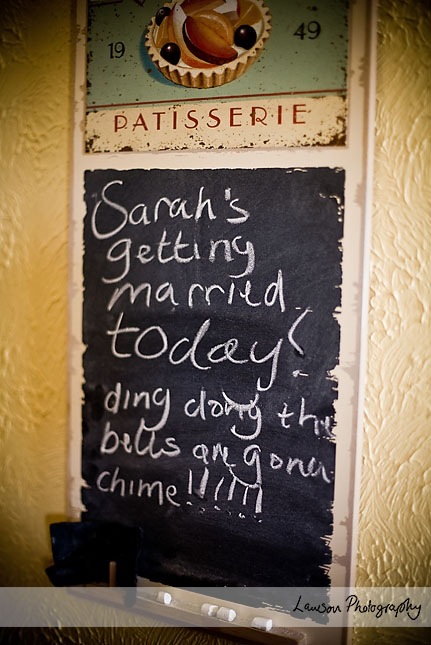 19 49
PATISSERIE
Sarah's
getting
married
today!
ding dong the
bells are gonna
chime!!!!!!
Lawson Photography